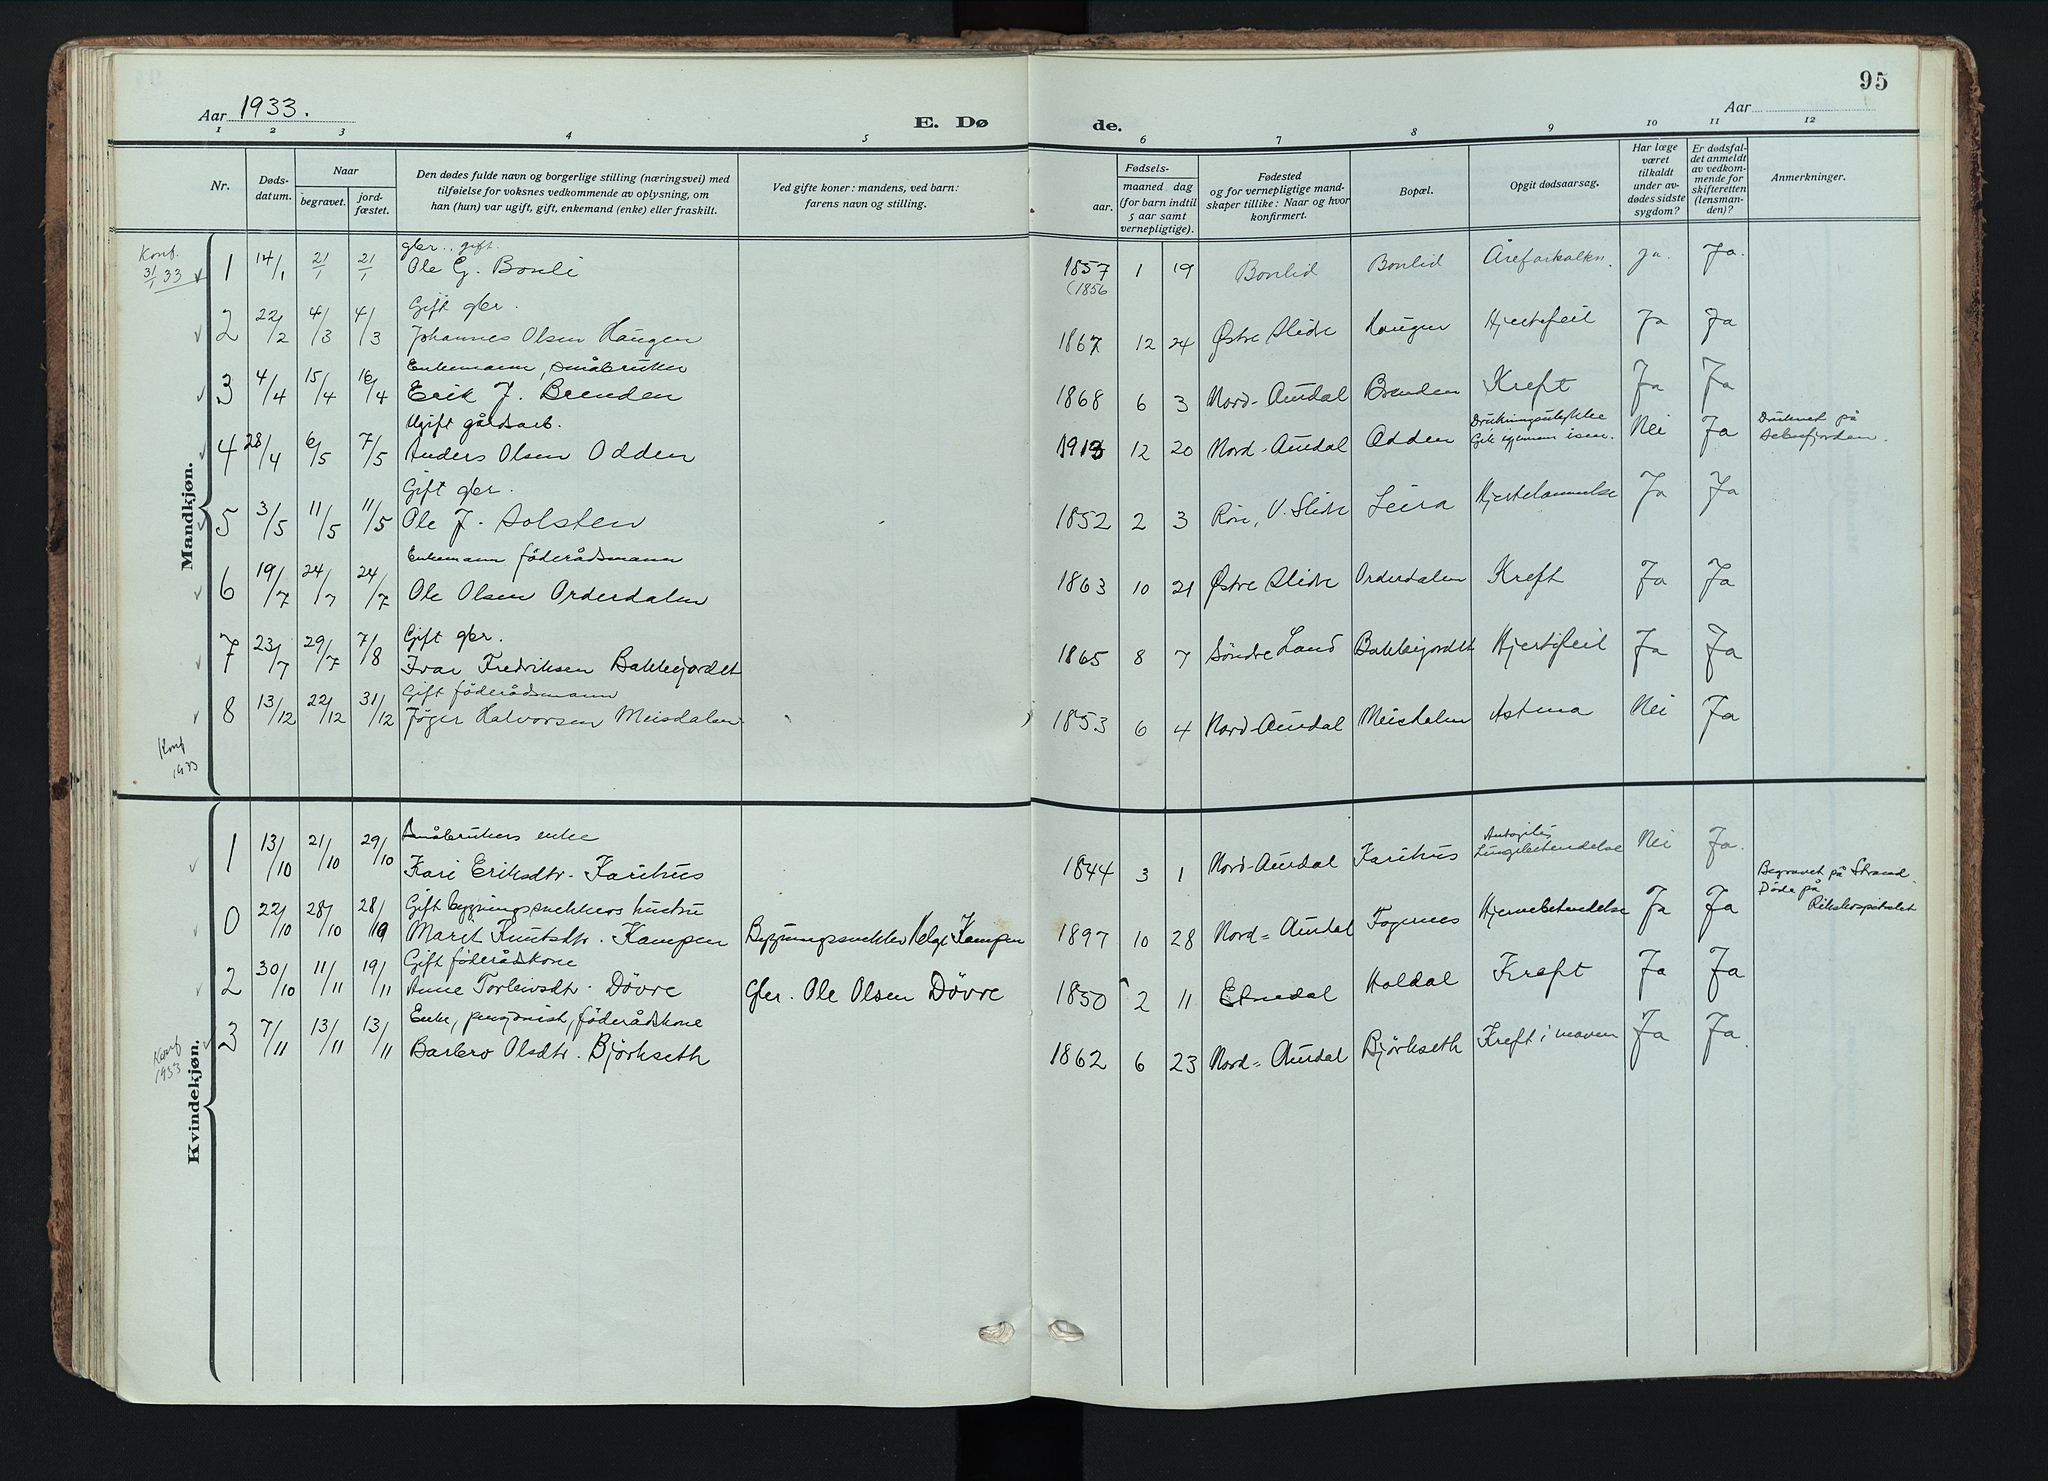 95
Aar 1933.
E. Dø
de.
Aar
1 2 3 4 5 6 7 8 9 10 11 12
Nr.
Døds-
datum.
Naar
begravet.
jord-
fæstet.
Den dødes fulde navn og borgerlige stilling (næringsvei) med
tilføielse for voksnes vedkommende av oplysning, om
han (hun) var ugift, gift, enkemand (enke) eller fraskilt.
Ved gifte koner: mandens, ved barn:
farens navn og stilling.
Fødsels-
aar.
maaned dag
(for barn indtil
5 aar samt
vernepligtige).
Fødested
og for vernepligtige mand-
skaper tillike: Naar og hvor
konfirmert.
Bopæl.
Opgit dødsaarsag.
Har læge
været
tilkaldt
under av-
dødes sidste
sygdom?
Er dødsfal-
det anmeldt
av vedkom-
mende for
skifteretten
(lensman-
den)?
Anmerkninger.
Mandkjøn.
Konf.
31/1 33
gbr., gift.
1 14/1 21/1 21/1 Ole G. Bonli 1857 1 19 Bonlid Bonlid Åreforkalkn. ja. Ja.
(1856
Gift gbr.
2 22/2 4/3 4/3 Johannes Olsen Haugen 1867 12 24 Østre Slidre Haugen Hjertefeil Ja Ja
Enkemann, småbruker
3 4/4 15/4 16/4 Erik J. Brenden 1868 6 3 Nord-Aurdal Brenden Kreft Ja Ja
Ugift gårdsarb.
4 28/4 6/5 7/5 Anders Olsen Odden 1913 12 20 Nord-Aurdal Odden Drukningsulykke Nei Ja Druknet på
Gik igjennem isen.
Gift gbr.
5 3/5 11/5 11/5 Ole J. Solsten 1852 2 3 Røn, V. Slidre Leira Hjertelammelse Ja Ja
Enkemann föderådsmann
6 19/7 24/7 24/7 Ole Olsen Orderdalen 1863 10 21 Østre Slidre Orderdalen Kreft Ja Ja
Gift gbr.
7 23/7 29/7 7/8 Ivar Fredriksen Bakkejordet 1865 8 7 Søndre Land Bakkejordet Hjertefeil Ja Ja
Gift föderådsmann
8 13/12 22/12 31/12 Jøger Halvorsen Meisdalen 1853 6 4 Nord-Aurdal Meisdalen Astma Nei Ja
Konf
1933
Kvindekjøn.
Småbrukers enke
1 13/10 21/10 29/10 Kari Eriksdtr. Karihus 1844 3 1 Nord-Aurdal Karihus Lungebetendelse Nei Ja.
Begravet på Strand.
Døde på
Rikshospitalet
Gift bygningssnekkers hustru
0 22/10 28/10 28/10 Marit Knutsdtr. Kampen Bygningssnekker Helge Kampen 1897 10 28 Nord-Aurdal Fagernes Hjernebetendelse Ja Ja
Gift föderådskone
2 30/10 11/11 19/11 Anne Torleivsdtr. Døvre Gbr. Ole Olsen Døvre 1850 2 11 Etnedal Haldal Kreft Ja Ja
Enke, pensjonist, föderådskone
3 7/11 13/11 13/11 Barbro Olsdtr. Bjørkseth 1862 6 23 Nord-Aurdal Bjørkseth Kreft i maven Ja Ja.
Konf
1933